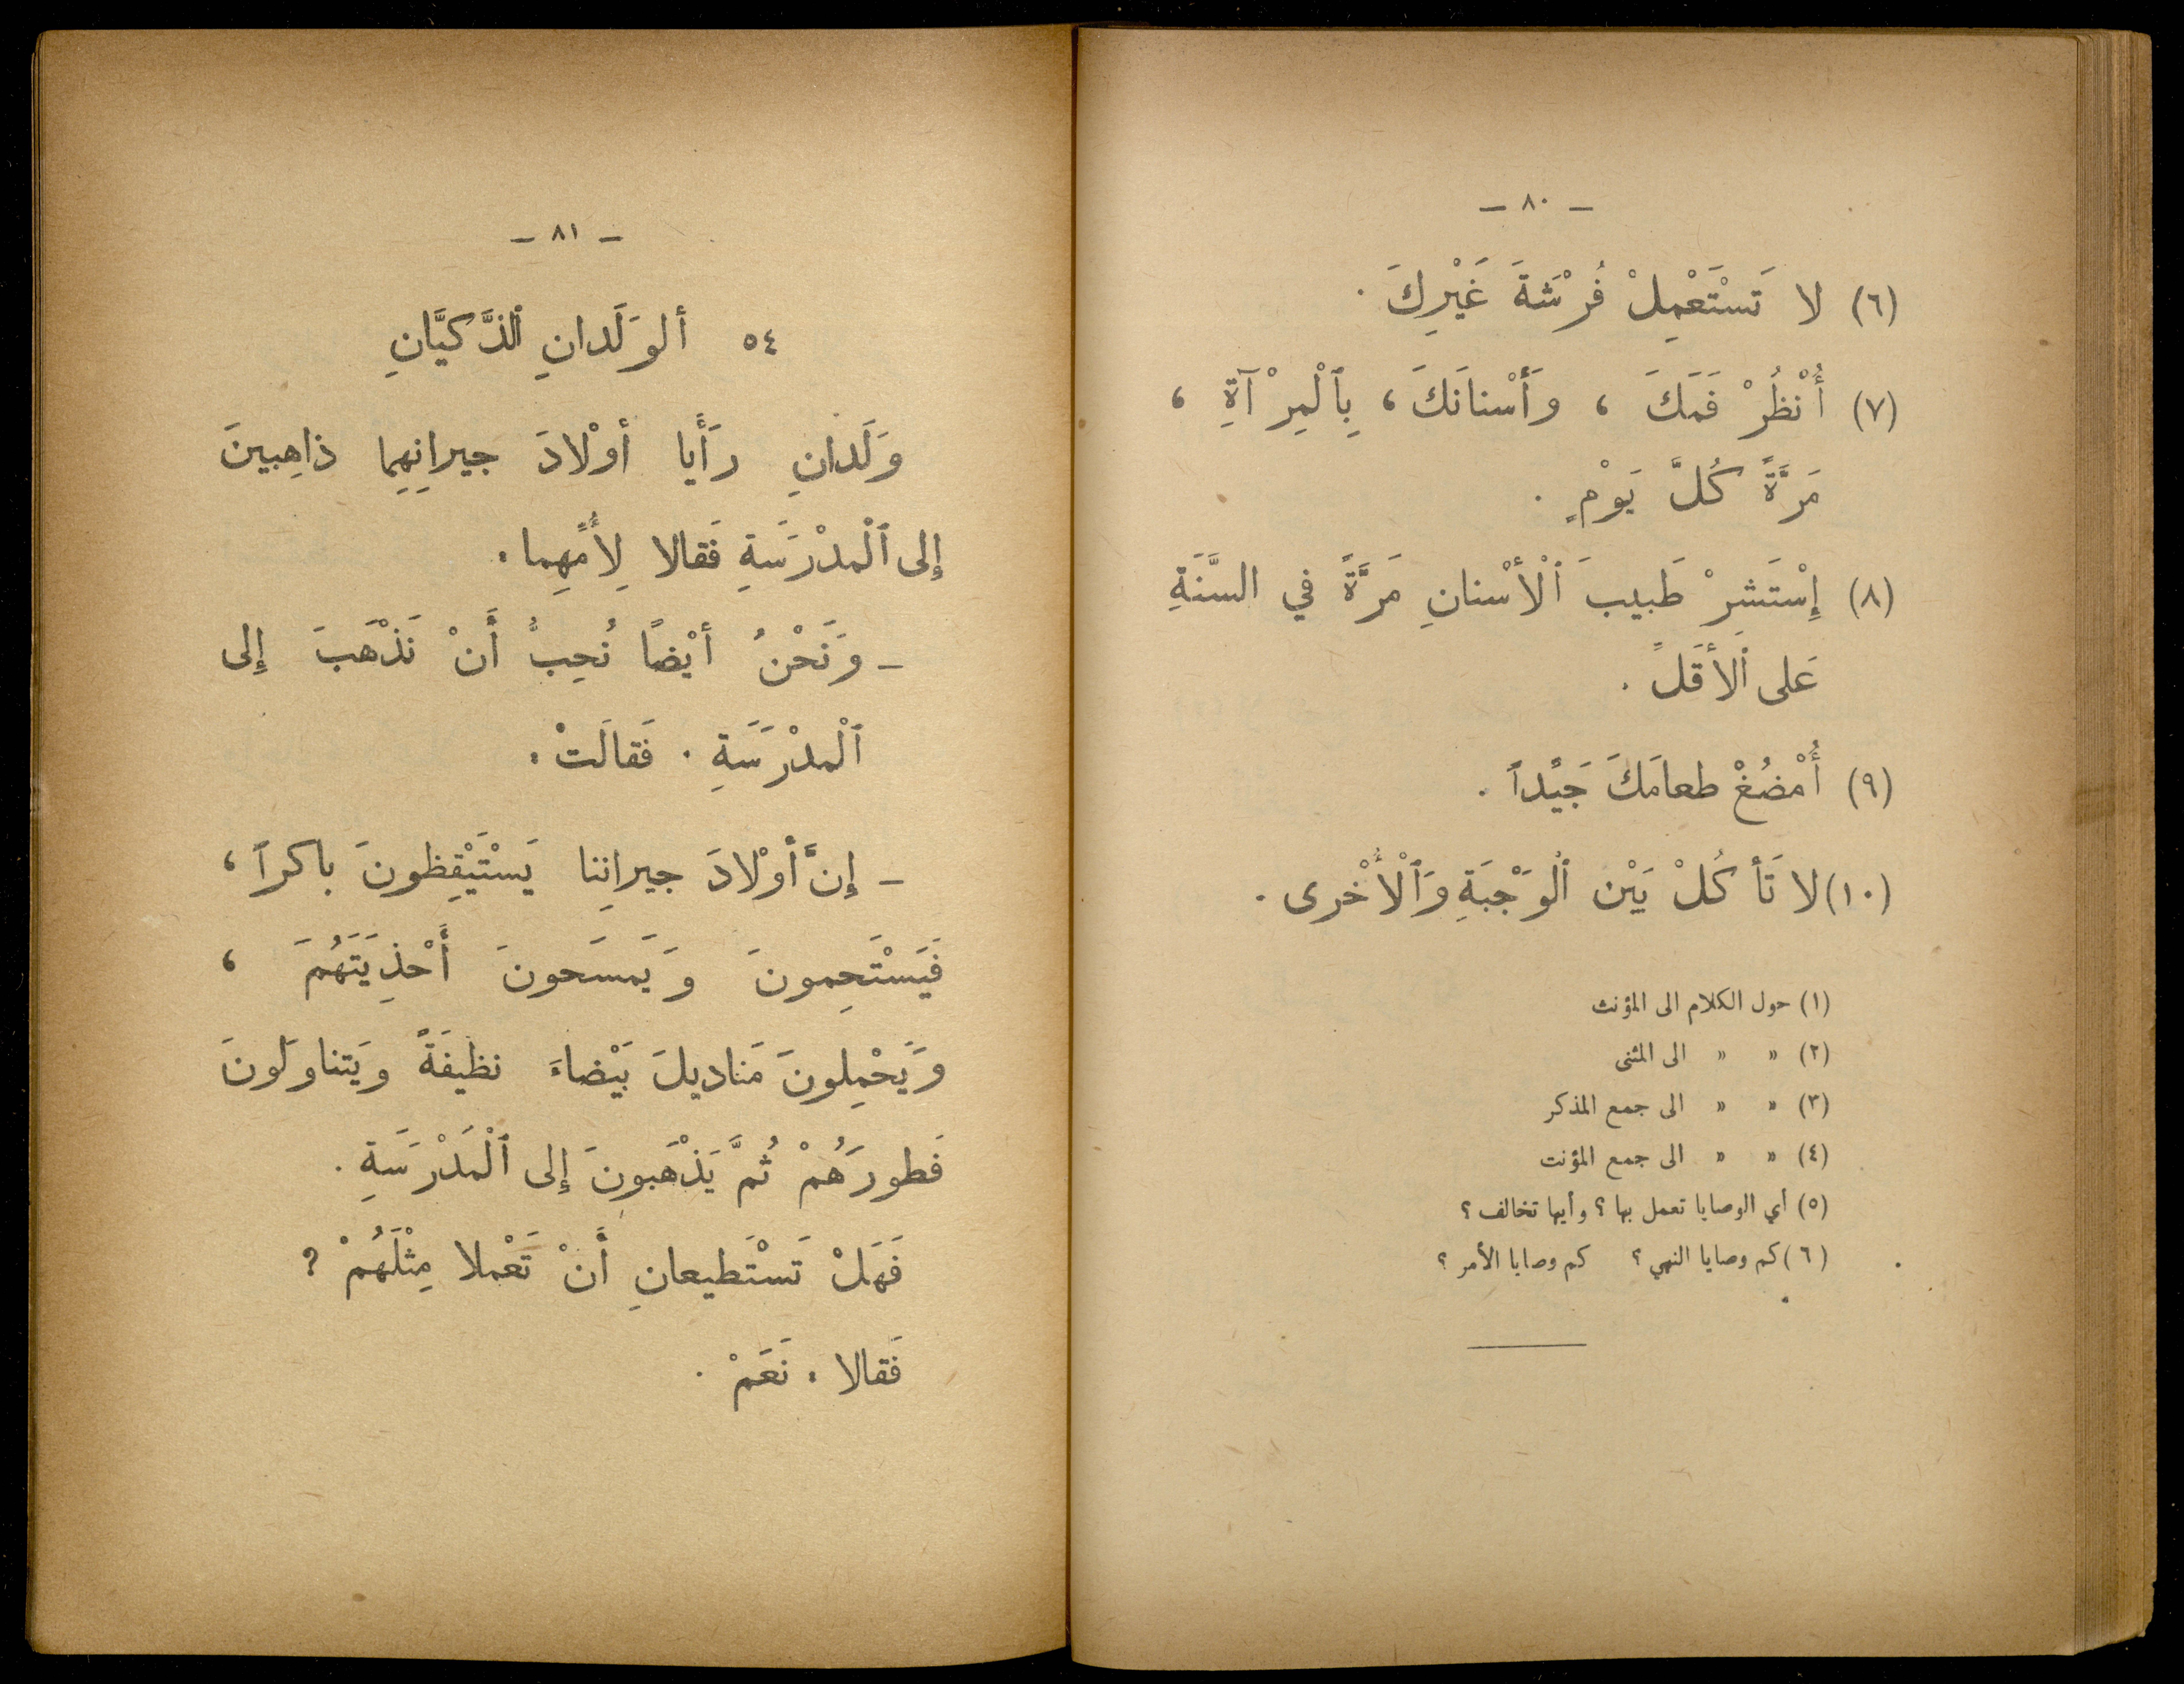 — ٨٠ —
(٦) لا تَسْتَعْمِلْ فُرْشَةَ غَيْرِكَ .
(٧) أُنْظُرْ فَمَكَ ، وَأَسْنانَكَ ، بِٱلْمِرْآةِ ،
مَرَّةً كُلَّ يَوْمٍ .
(٨) إِسْتَشِرْ طَبيبَ ٱلْأَسْنانِ مَرَّةً في السَّنَةِ
عَلى ٱلأَقَلِّ .
(٩) أُمْضُغْ طعامَكَ جَيِّداً .
(١٠) لا تَأكُلْ بَيْن ٱلْوَجْبَةِ وَٱلْأُخْرى .
(١) حول الكلام الى المؤنث
(٢) » » الى المثنى
(٣) » » الى جمع المذكر
(٤) » » الى جمع المؤنت
(٥) أي الوصايا تعمل بها ؟ وأيها تخالف ؟
(٦) كم وصايا النهي ؟ كم وصايا الأمر ؟
— ٨١ —
٥٤ ألوَلَدانِ ٱلذَّكيَّانِ
وَلَدانِ رَأَيا أوْلادَ جيرانِهِما ذاهِبينَ
إِلى ٱلْمدْرَسَةِ فَقالا لِأُمِّهِما :
– وَنَحْنُ أيْضاً نُحِبُّ أَنْ نَذْهَبَ إِلى
ٱلْمدْرَسَةِ . فَقالَتْ :
– إِنَّ أوْلادَ جيرانِنا يَسْتَيْقِظونَ باكراً ،
فَيَسْتَحِمونَ وَيَمسَحونَ أَحْذِيَتَهُمَ ،
وَيَحْمِلونَ مَناديلَ بَيْضاءَ نظيفَةً وَيَتناوَلونَ
فَطورَهُمْ ثُمَّ يَذْهَبونَ إِلى ٱلْمَدْرَسَةِ .
فَهَلْ تَسْتَطيعانِ أَنْ تَعْملا مِثْلَهُمْ ؟
فَقالا : نَعَمْ .